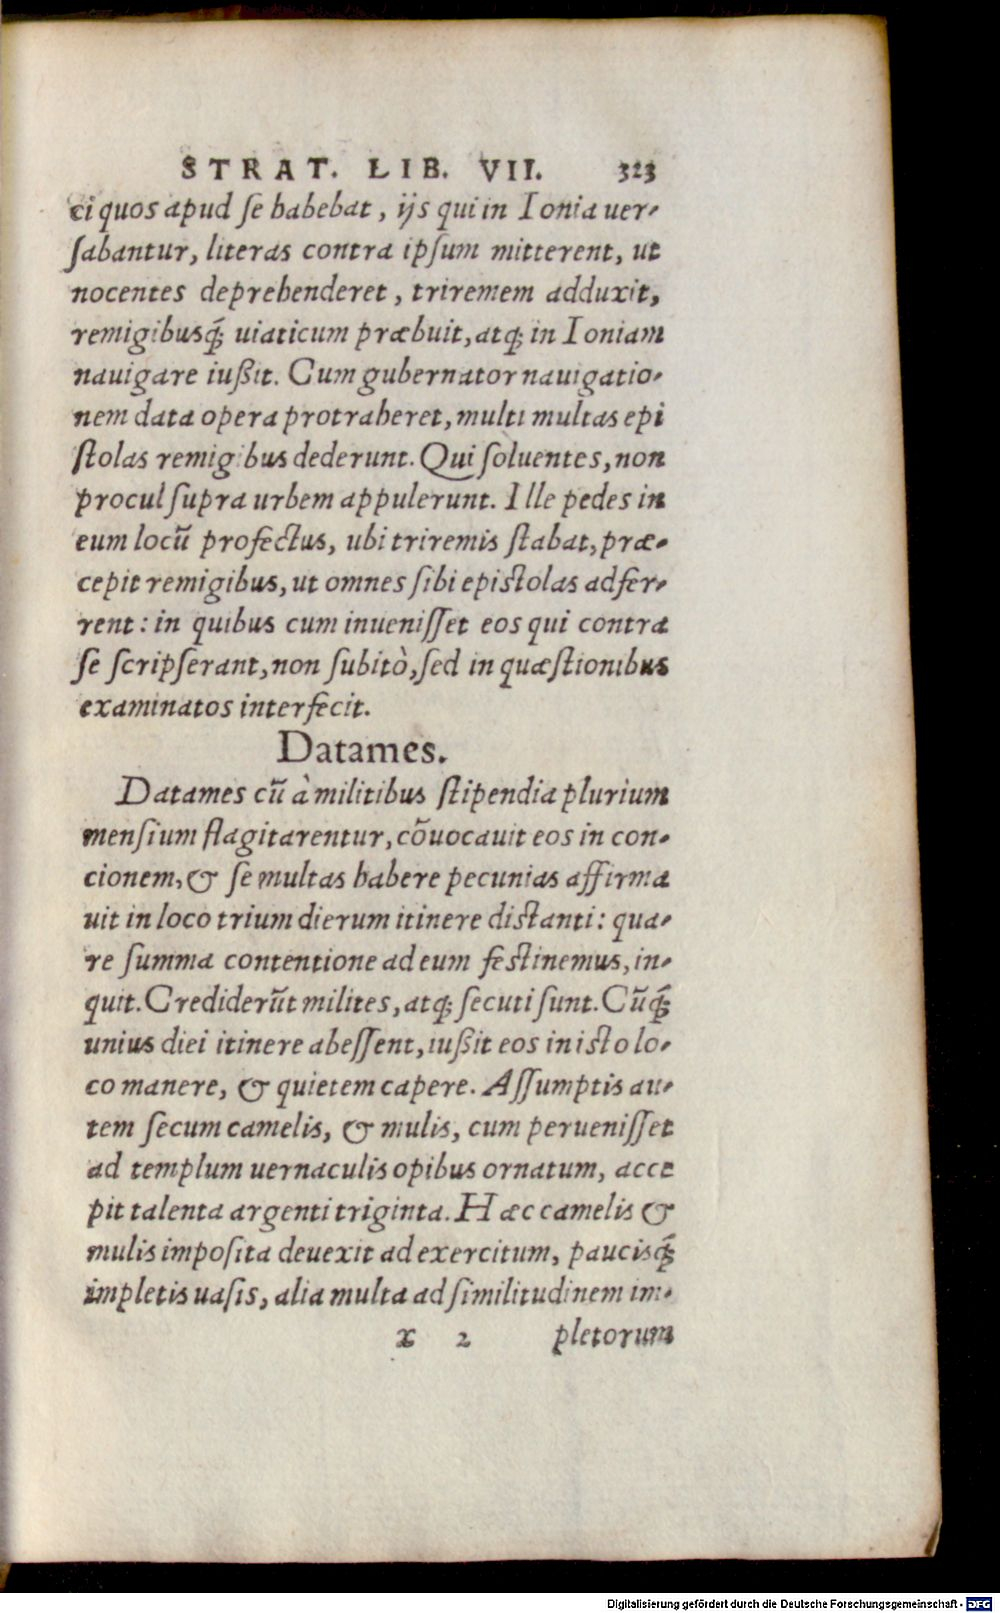 STRAT. LIB. VII. 323
ci quos apud se habebat, ijs qui in Ionia uer-
sabantur, literas contra ipsum mitterent, ut
nocentes deprehenderet, triremem adduxit,
remigibusq́; uiaticum præbuit, atq; in Ioniam
nauigare iußit. Cum gubernator nauigatio-
nem data opera protraheret, multi multas epi
stolas remigibus dederunt. Qui soluentes, non
procul supra urbem appulerunt. Ille pedes in
eum locũ profectus, ubi triremis stabat, præ-
cepit remigibus, ut omnes sibi epistolas adfer-
rent: in quibus cum inuenisset eos qui contra
se scripserant, non subitò, sed in quæstionibus
examinatos interfecit.
Datames.
Datames cũ à militibus stipendia plurium
mensium flagitarentur, cõuocauit eos in con-
cionem, & se multas habere pecunias affirma
uit in loco trium dierum itinere distanti: qua-
re summa contentione ad eum festinemus, in-
quit. Crediderũt milites, atq; secuti sunt. Cũq́;
unius diei itinere abessent, iußit eos in isto lo-
co manere, & quietem capere. Assumptis au-
tem secum camelis, & mulis, cum peruenisset
ad templum uernaculis opibus ornatum, acce
pit talenta argenti triginta. Hæc camelis &
mulis imposita deuexit ad exercitum, paucisq́;
impletis uasis, alia multa ad similitudinem im-
x 2 pletorum
Digitalisierung gefördert durch die Deutsche Forschungsgemeinschaft - DFG